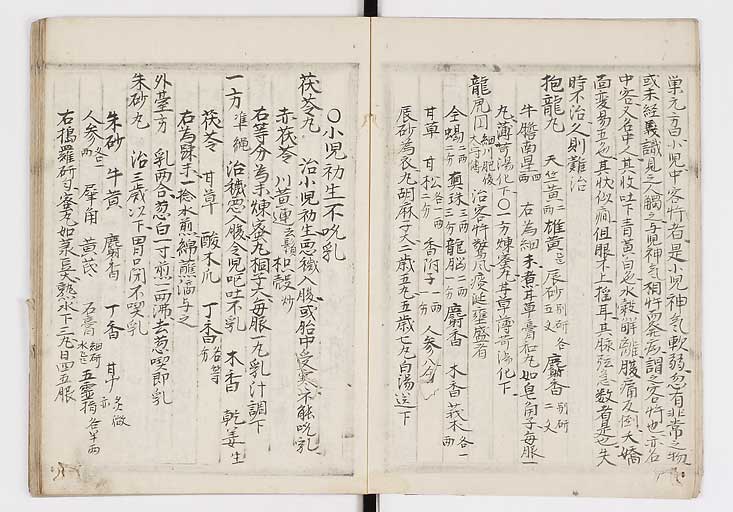 巢元方曰小児中客忤者是小児神氣軟弱忽有非常之物
或未経識見之人觸之与児神氣相忤而発病謂之客忤也亦名
中客又名中人其状吐下青黄白色水穀解離腹痛反倒夭矯
面変易五色其状似癇但眼不上插耳其脉弦急数者是也失
時不治久則難治
抱龍丸 天竺黄一両 雄黄一匁 辰砂別研各五文 麝香別研二文
牛膽南星四両 右為細末煮甘草膏和丸如皂角子毎服一
丸薄荷湯化下〇一方煉蜜丸甘草薄荷湯化下
龍児円 治客忤驚風痰涎壅盛者
全蝎 真珠 龍脳 麝香 木香 莪朮各一両
甘草 甘松 香附子 人参
辰砂為衣丸胡麻子大一歳五丸五歳七丸白湯送下
〇小児初生不吮乳
茯苓丸 治小児初生悪穢入腹或胎中受寒不能吮乳
赤茯苓 川黄連去鬚 枳殻炒
右等分為末煉蜜丸梧子大毎服一丸乳汁調下
一方準縄 治穢悪入腹令児嘔吐不乳 木香 乾姜生
茯苓 甘草 酸木瓜 丁香各等分
右為麁末一捻水煎綿蘸滴与之
外臺方 乳両合葱白一寸煎一両沸去葱喫即乳
朱砂丸 治三歳以下胃口閉不喫乳
朱砂 牛黄 麝香 丁香 甘草炙微赤
人参各一両 犀角 黄芪 石膏細研水飛 五靈脂各半両
右搗羅研匀蜜丸如菉豆大熱水下三丸日四五服